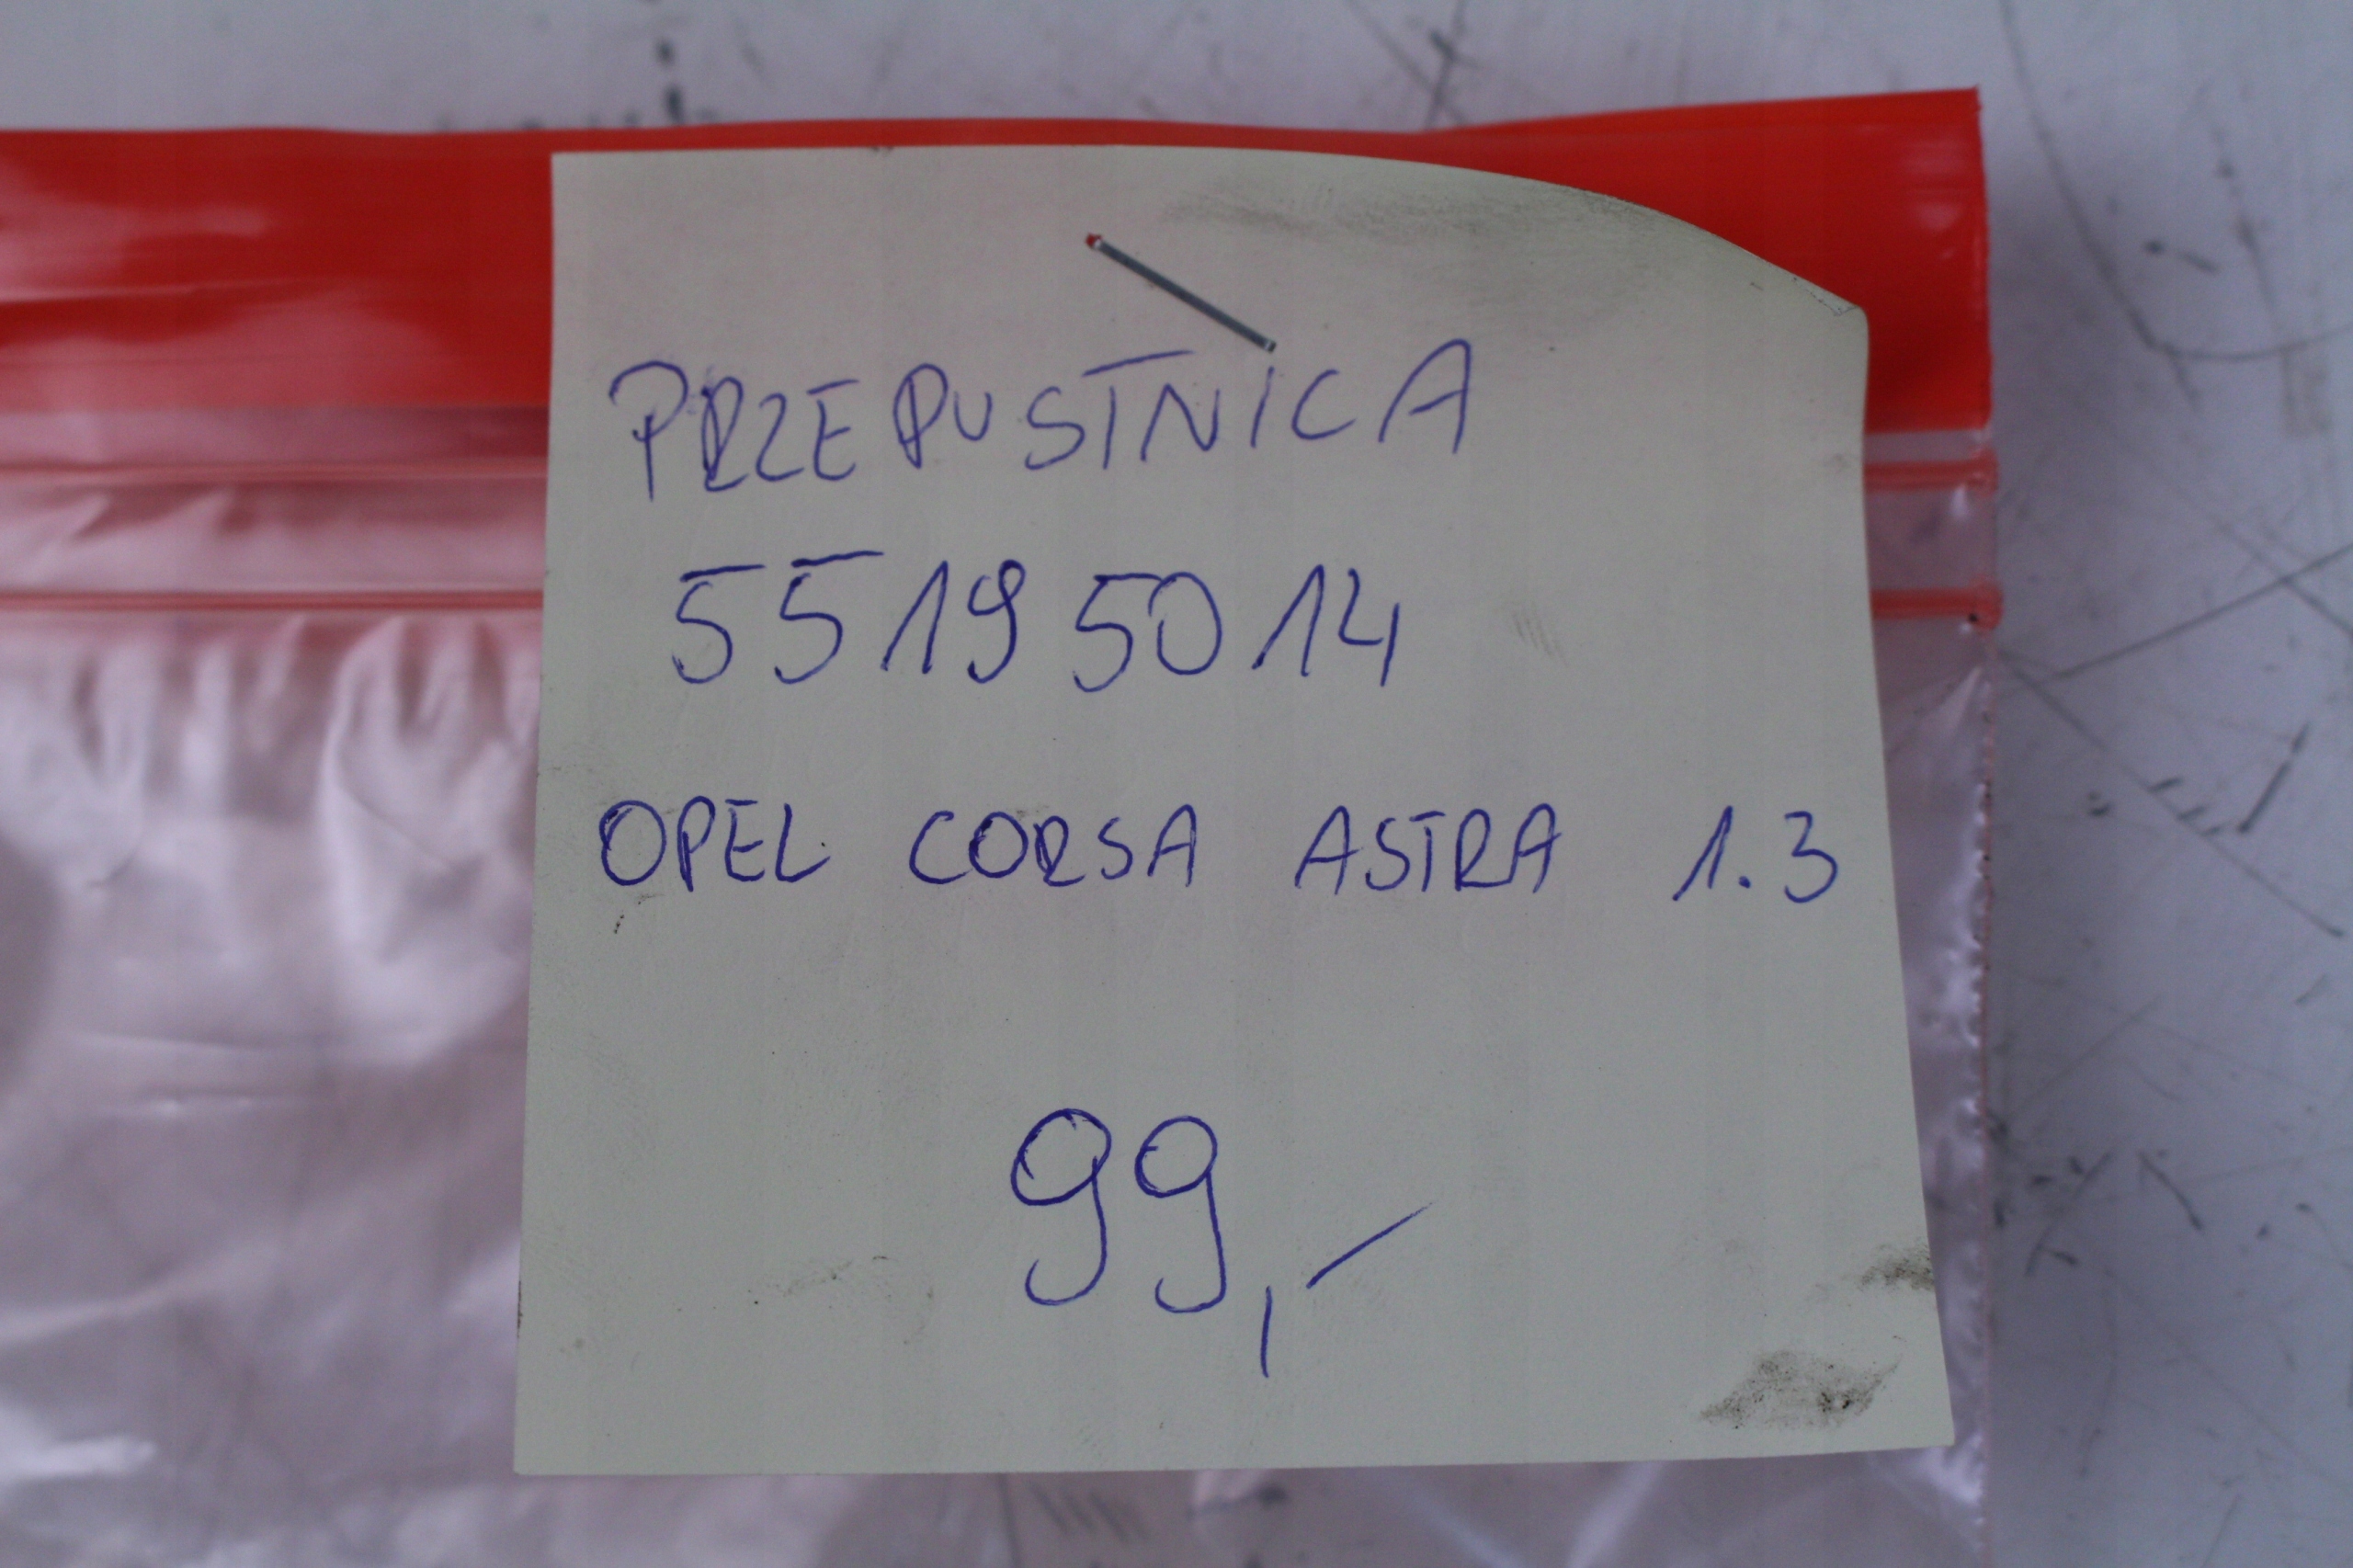 PRZEPUSTNICA
55195014
OPEL CORSA ASTRA 1.3
99,-